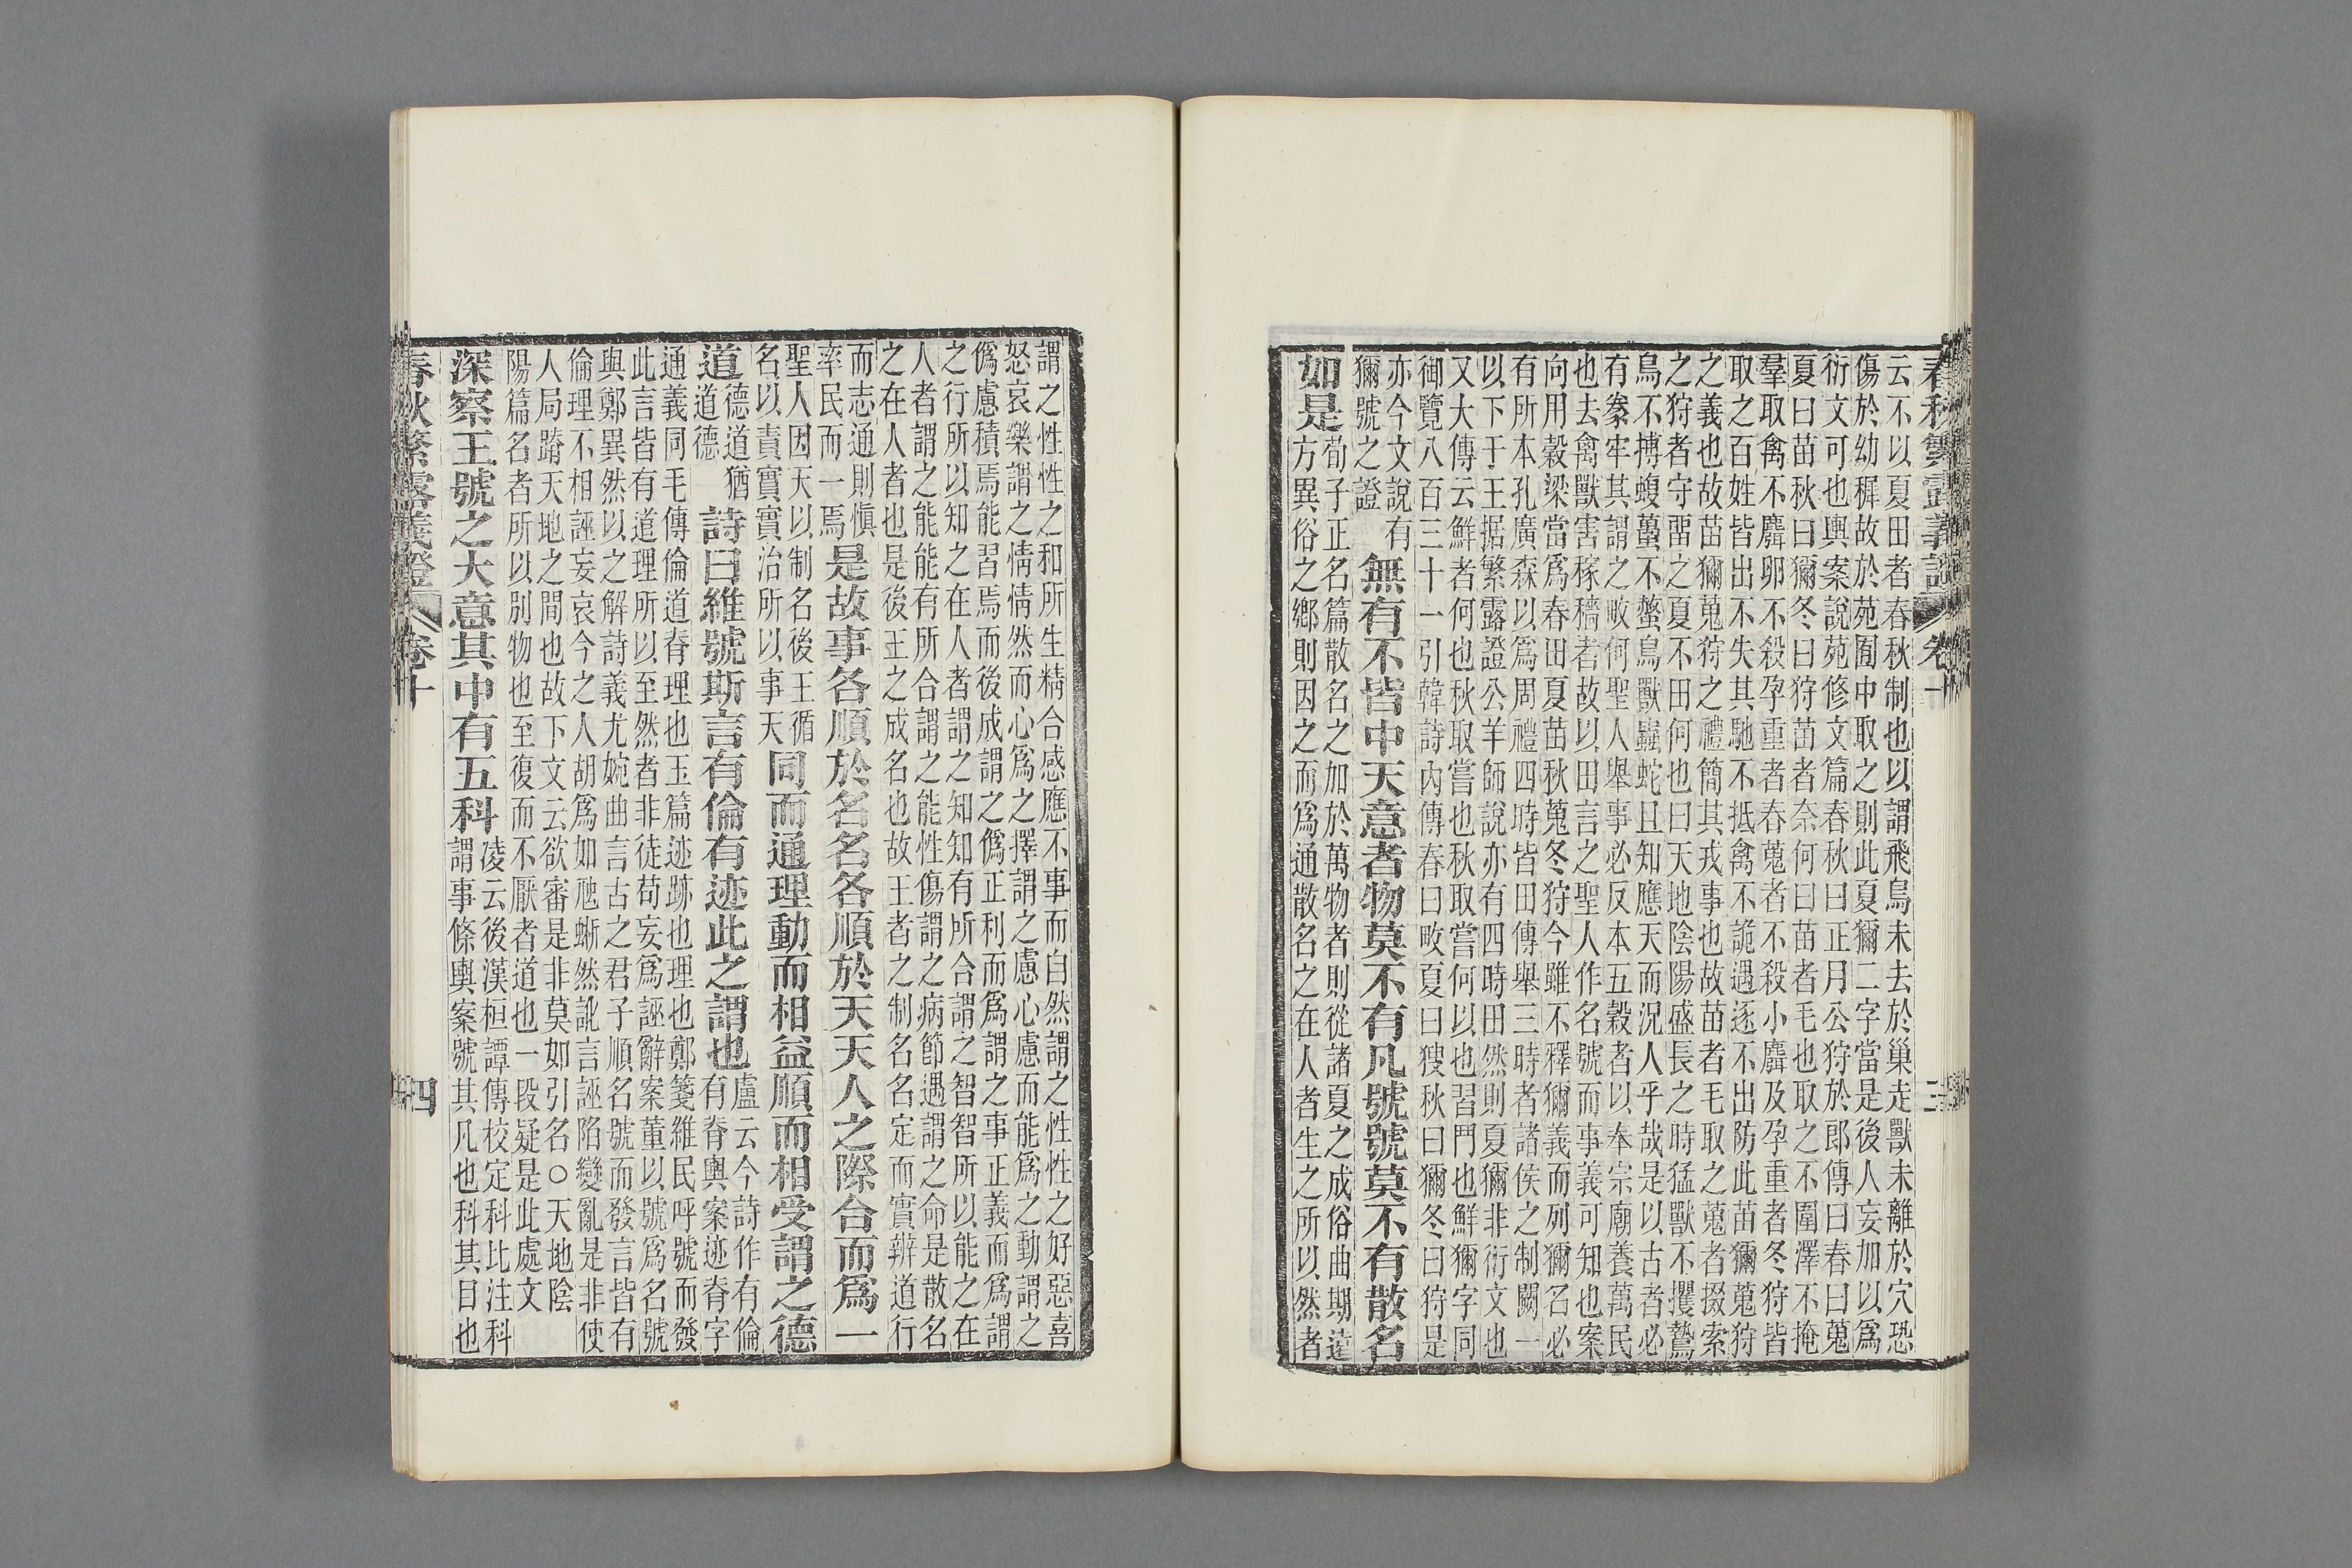 春秋繁露義證 卷十 三
云不以夏田者春秋制也以謂飛鳥未去於巢走獸未離於穴恐
傷於幼稺故於苑囿中取之則此夏獮二字當是後人妄加以爲
衍文可也輿案說苑修文篇春秋曰正月公狩於郎傳曰春曰蒐
夏曰苗秋曰獮冬曰狩苗者奈何曰苗者毛也取之不圍澤不掩
羣取禽不麛卵不殺孕重者春蒐者不殺小麛及孕重者冬狩皆
取之百姓皆出不失其馳不抵禽不詭遇逐不出防此苗獮蒐狩
之義也故苗獮蒐狩之禮簡其戎事也故苗者毛取之蒐者掇索
之狩者守畱之夏不田何也曰天地陰陽盛長之時猛獸不攫鷙
鳥不搏蝮蠆不螫鳥獸蟲蛇且知應天而況人乎哉是以古者必
有豢牢其謂之畋何聖人舉事必反本五穀者以奉宗廟養萬民
也去禽獸害稼穡者故以田言之聖人作名號而事義可知也案
向用穀梁當爲春田夏苗秋蒐冬狩今雖不釋獮義而列獮名必
有所本孔廣森以爲周禮四時皆田傳舉三時者諸侯之制闕一
以下于王据繁露證公羊師說亦有四時田然則夏獮非衍文也
又大傳云鮮者何也秋取嘗也秋取嘗何以也習鬥也鮮獮字同
御覽八百三十一引韓詩內傳春曰畋夏曰獀秋曰獮冬曰狩是
亦今文說有
獮號之證
無有不皆中天意者物莫不有凡號號莫不有散名
如是
荀子正名篇散名之加於萬物者則從諸夏之成俗曲期遠
方異俗之鄉則因之而爲通散名之在人者生之所以然者
謂之性性之和所生精合感應不事而自然謂之性性之好惡喜
怒哀樂謂之情情然而心爲之擇謂之慮心慮而能爲之動謂之
僞慮積焉能習焉而後成謂之僞正利而爲謂之事正義而爲謂
之行所以知之在人者謂之知知有所合謂之智智所以能之在
人者謂之能能有所合謂之能性傷謂之病節遇謂之命是散名
之在人者也是後王之成名也故王者之制名名定而實辨道行
而志通則慎
率民而一焉
是故事各順於名名各順於天天人之際合而爲一
聖人因天以制名後王循
名以責實實治所以事天
同而通理動而相益順而相受謂之德
道
德道猶
道德
詩曰維號斯言有倫有迹此之謂也
盧云今詩作有倫
有脊輿案迹脊字
通義同毛傳倫道脊理也玉篇迹跡也理也鄭箋維民呼號而發
此言皆有道理所以至然者非徒苟妄爲誣辭案董以號爲名號
與鄭異然以之解詩義尤婉曲言古之君子順名號而發言皆有
倫理不相誣妄哀今之人胡爲如虺蜥然訛言誣陷變亂是非使
人局蹐天地之間也故下文云欲審是非莫如引名○天地陰
陽篇名者所以別物也至復而不厭者道也一段疑是此處文
深察王號之大意其中有五科
凌云後漢桓譚傳校定科比注科
謂事條輿案號其凡也科其目也
春秋繁露義證 卷十 四